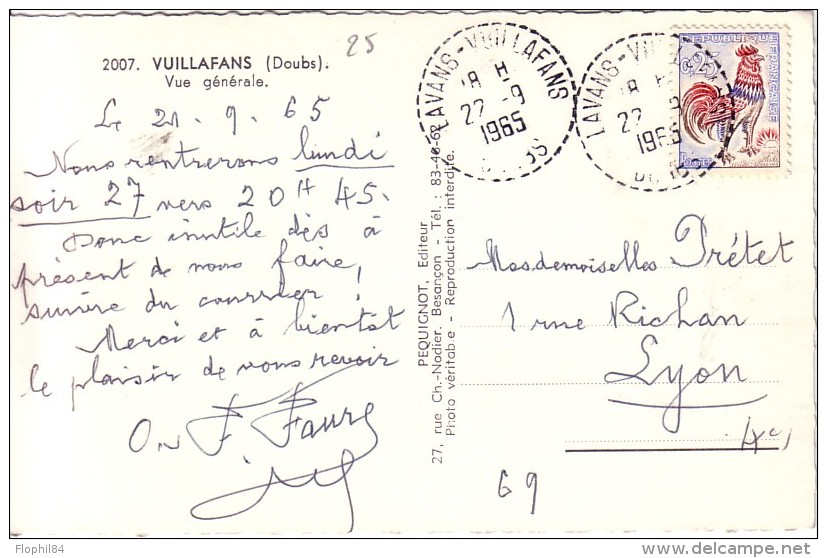 2007. VUILLAFANS (Doubs).
Vue générale.
25
Le 21.9.65
Nous rentrerons lundi
soir 27 vers 20H 45.
Donc inutile dès à
présent de nous faire
suivre du courrier !
Merci et à bientôt
le plaisir de vous revoir
F. Faure
PEQUIGNOT, Editeur
27, rue Ch.-Nodier, Besançon - Tél. : 83-46-62
Photo véritable - Reproduction interdite.
LAVANS-VUILLAFANS
18 H
22 -9
1965
DOUBS
LAVANS-VUILLAFANS
18 H
22 -9
1965
DOUBS
REPUBLIQUE FRANÇAISE
0,25
POSTES
Mesdemoiselles Prétet
1 rue Richan
Lyon
(4e)
69
Flophil84
delcampe.net